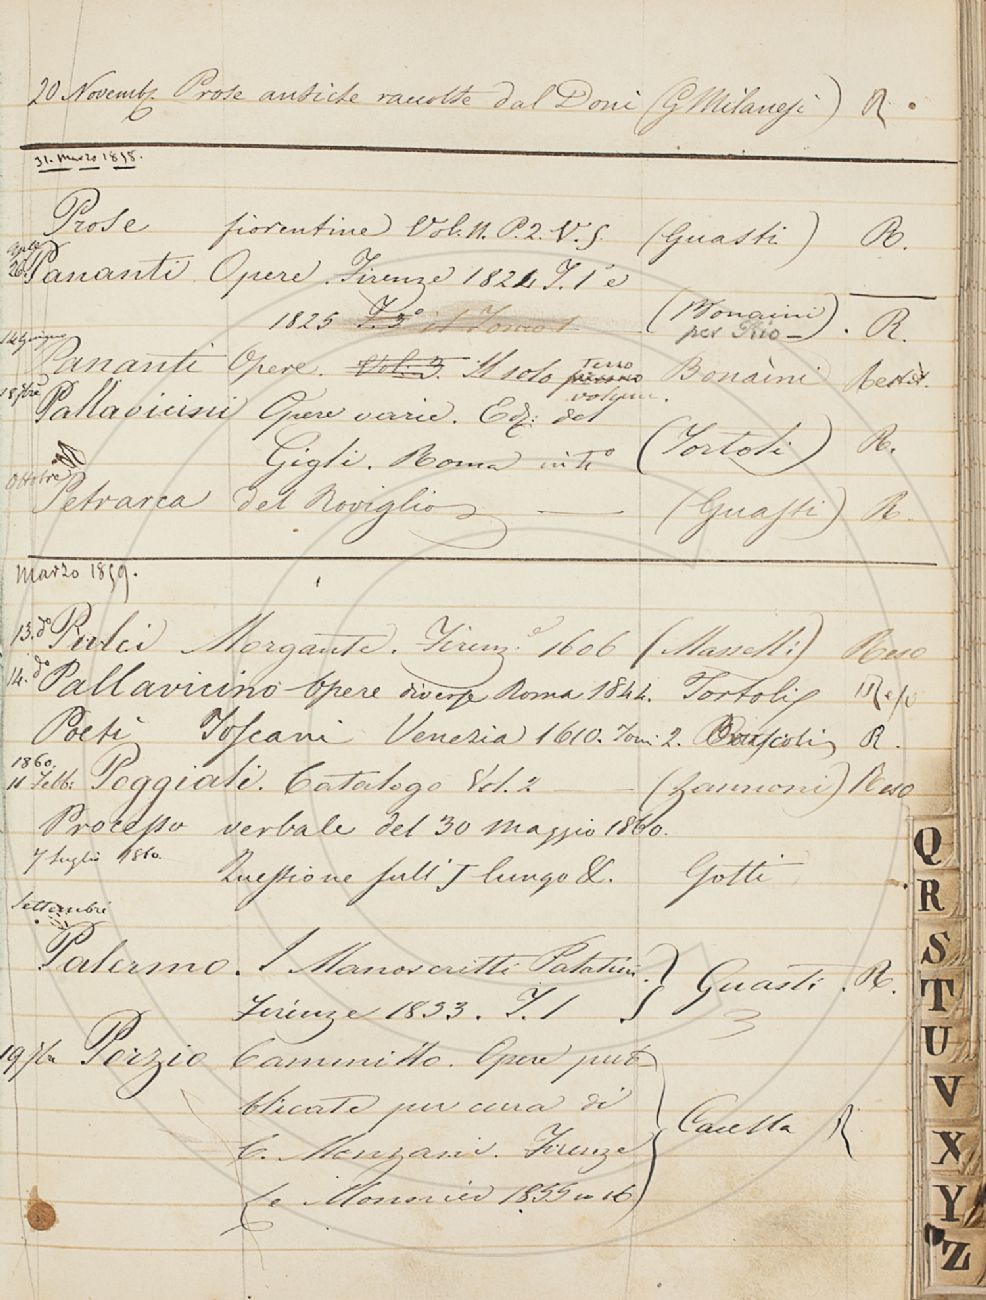 20 Novemb. Prose antiche raccolte dal Doni (G Milanesi) R.
31. Marzo 1858.
Prose fiorentine Vol. II. P. 2. V. 5. (Guasti) R.
26. Pananti Opere. Firenze 1824 T. 1 e
1825 T. 3° il Tomo 1 (Bonaini) R.
per Pio
14 Giugno
Pananti Opere. Vol. 3. Il solo terzo Bonaini Restit.
volume.
18 7bre
Pallavicini Opere varie. Ediz. del
Gigli. Roma (Tortoli) R.
Ottobre
Petrarca del Roviglio (Guasti) R.
Marzo 1859.
13. do Pulci Morgante. Firenze 1606 (Masselli) Reso
14. do Pallavicino Opere diverse Roma 1844. Tortoli Reso
Poeti Toscani Venezia 1610. Tomi 2. R.
1860.
11 Febb: Poggiali. Catalogo Vol. 2 (Zannoni) Reso
Processo verbale del 30 Maggio 1860.
7 Luglio 1860
Questione sull' J lungo &. Gotti
Settembre
Palermo. I Manoscritti Palatini. Guasti. R.
Firenze 1833. T. 1
19 Porzio Cammillo. Opere pub-
blicate per cura di Casella R
C. Monzani. Firenze
Le Monnier 1855 in 16
Q
R
S
T
U
V
X
Y
Z